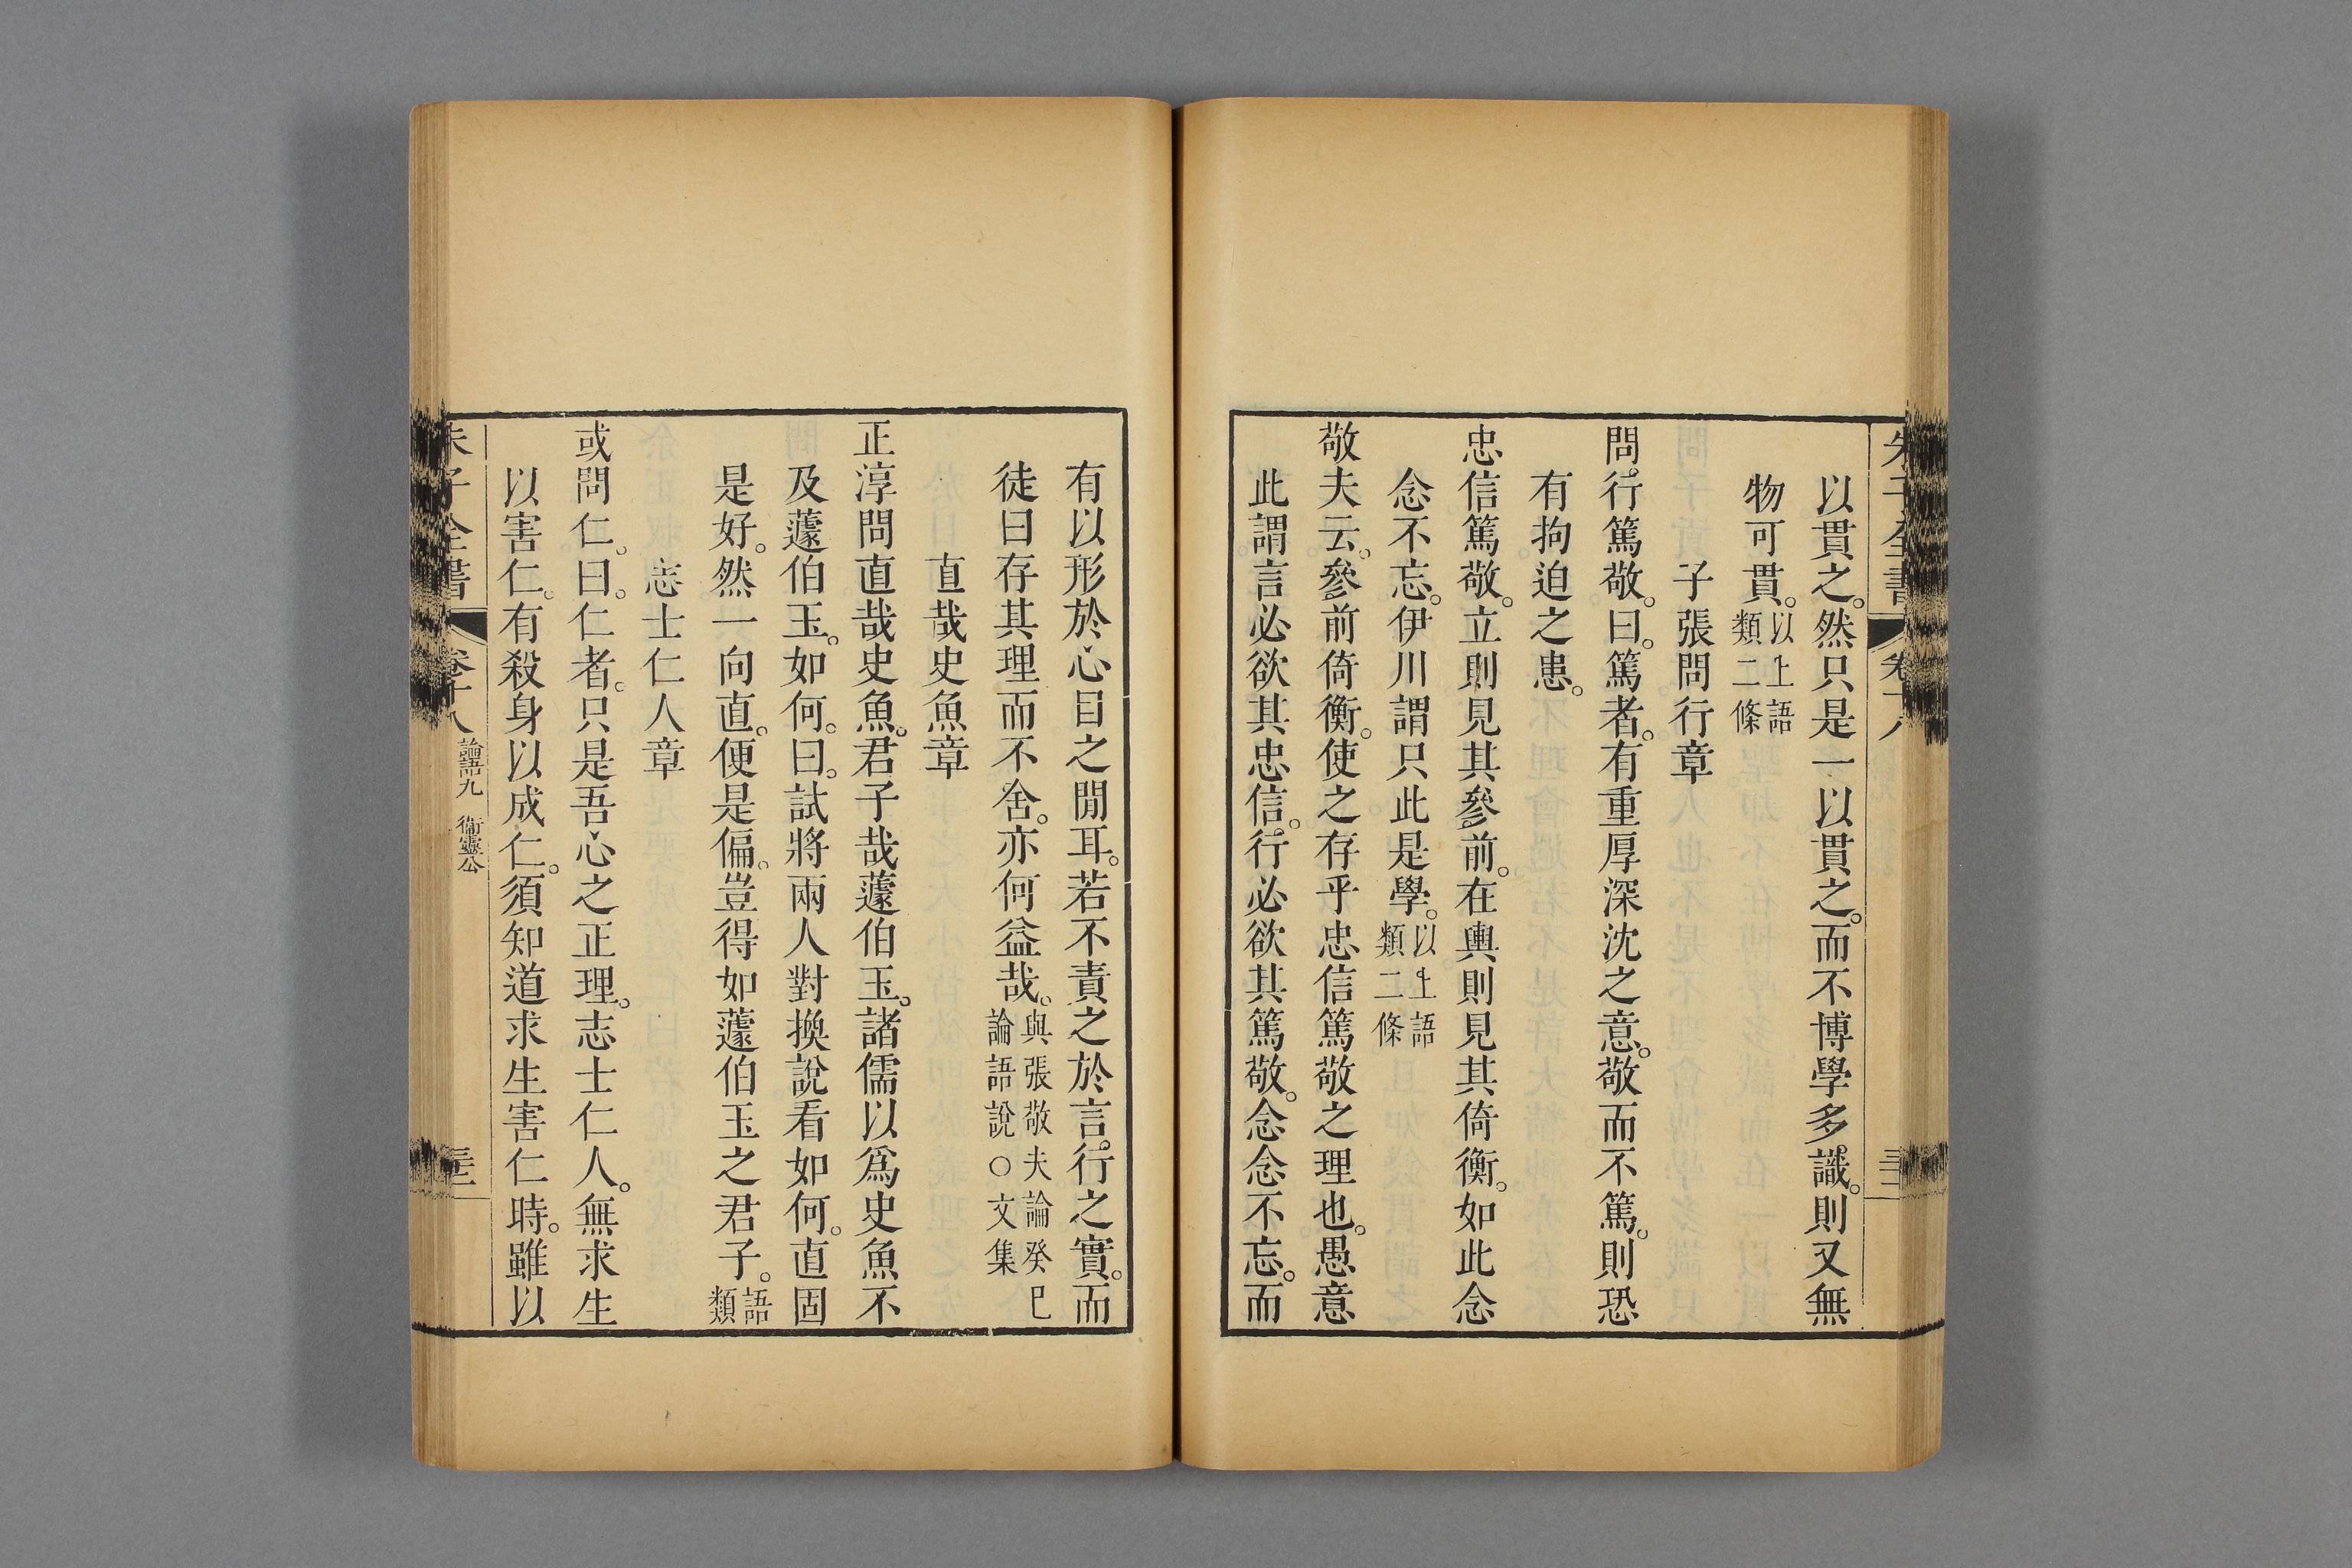 以貫之。然只是一以貫之。而不博學多識。則又無
物可貫。以上語類二條
子張問行章
問。行篤敬。曰。篤者。有重厚深沈之意。敬而不篤。則恐
有拘迫之患。
忠信篤敬。立則見其參前。在輿則見其倚衡。如此念
念不忘。伊川謂只此是學。以上語類二條
敬夫云。參前倚衡。使之存乎忠信篤敬之理也。愚意
此謂言必欲其忠信。行必欲其篤敬。念念不忘。而
有以形於心目之閒耳。若不責之於言行之實。而
徒曰存其理而不舍。亦何益哉。與張敬夫論癸巳論語說○文集
直哉史魚章
正淳問直哉史魚。君子哉蘧伯玉。諸儒以爲史魚不
及蘧伯玉。如何。曰。試將兩人對換說看如何。直固
是好。然一向直。便是偏。豈得如蘧伯玉之君子。語類
志士仁人章
或問仁。曰。仁者。只是吾心之正理。志士仁人。無求生
以害仁。有殺身以成仁。須知道求生害仁時。雖以
朱子全書 卷十八 論語九 衛靈公